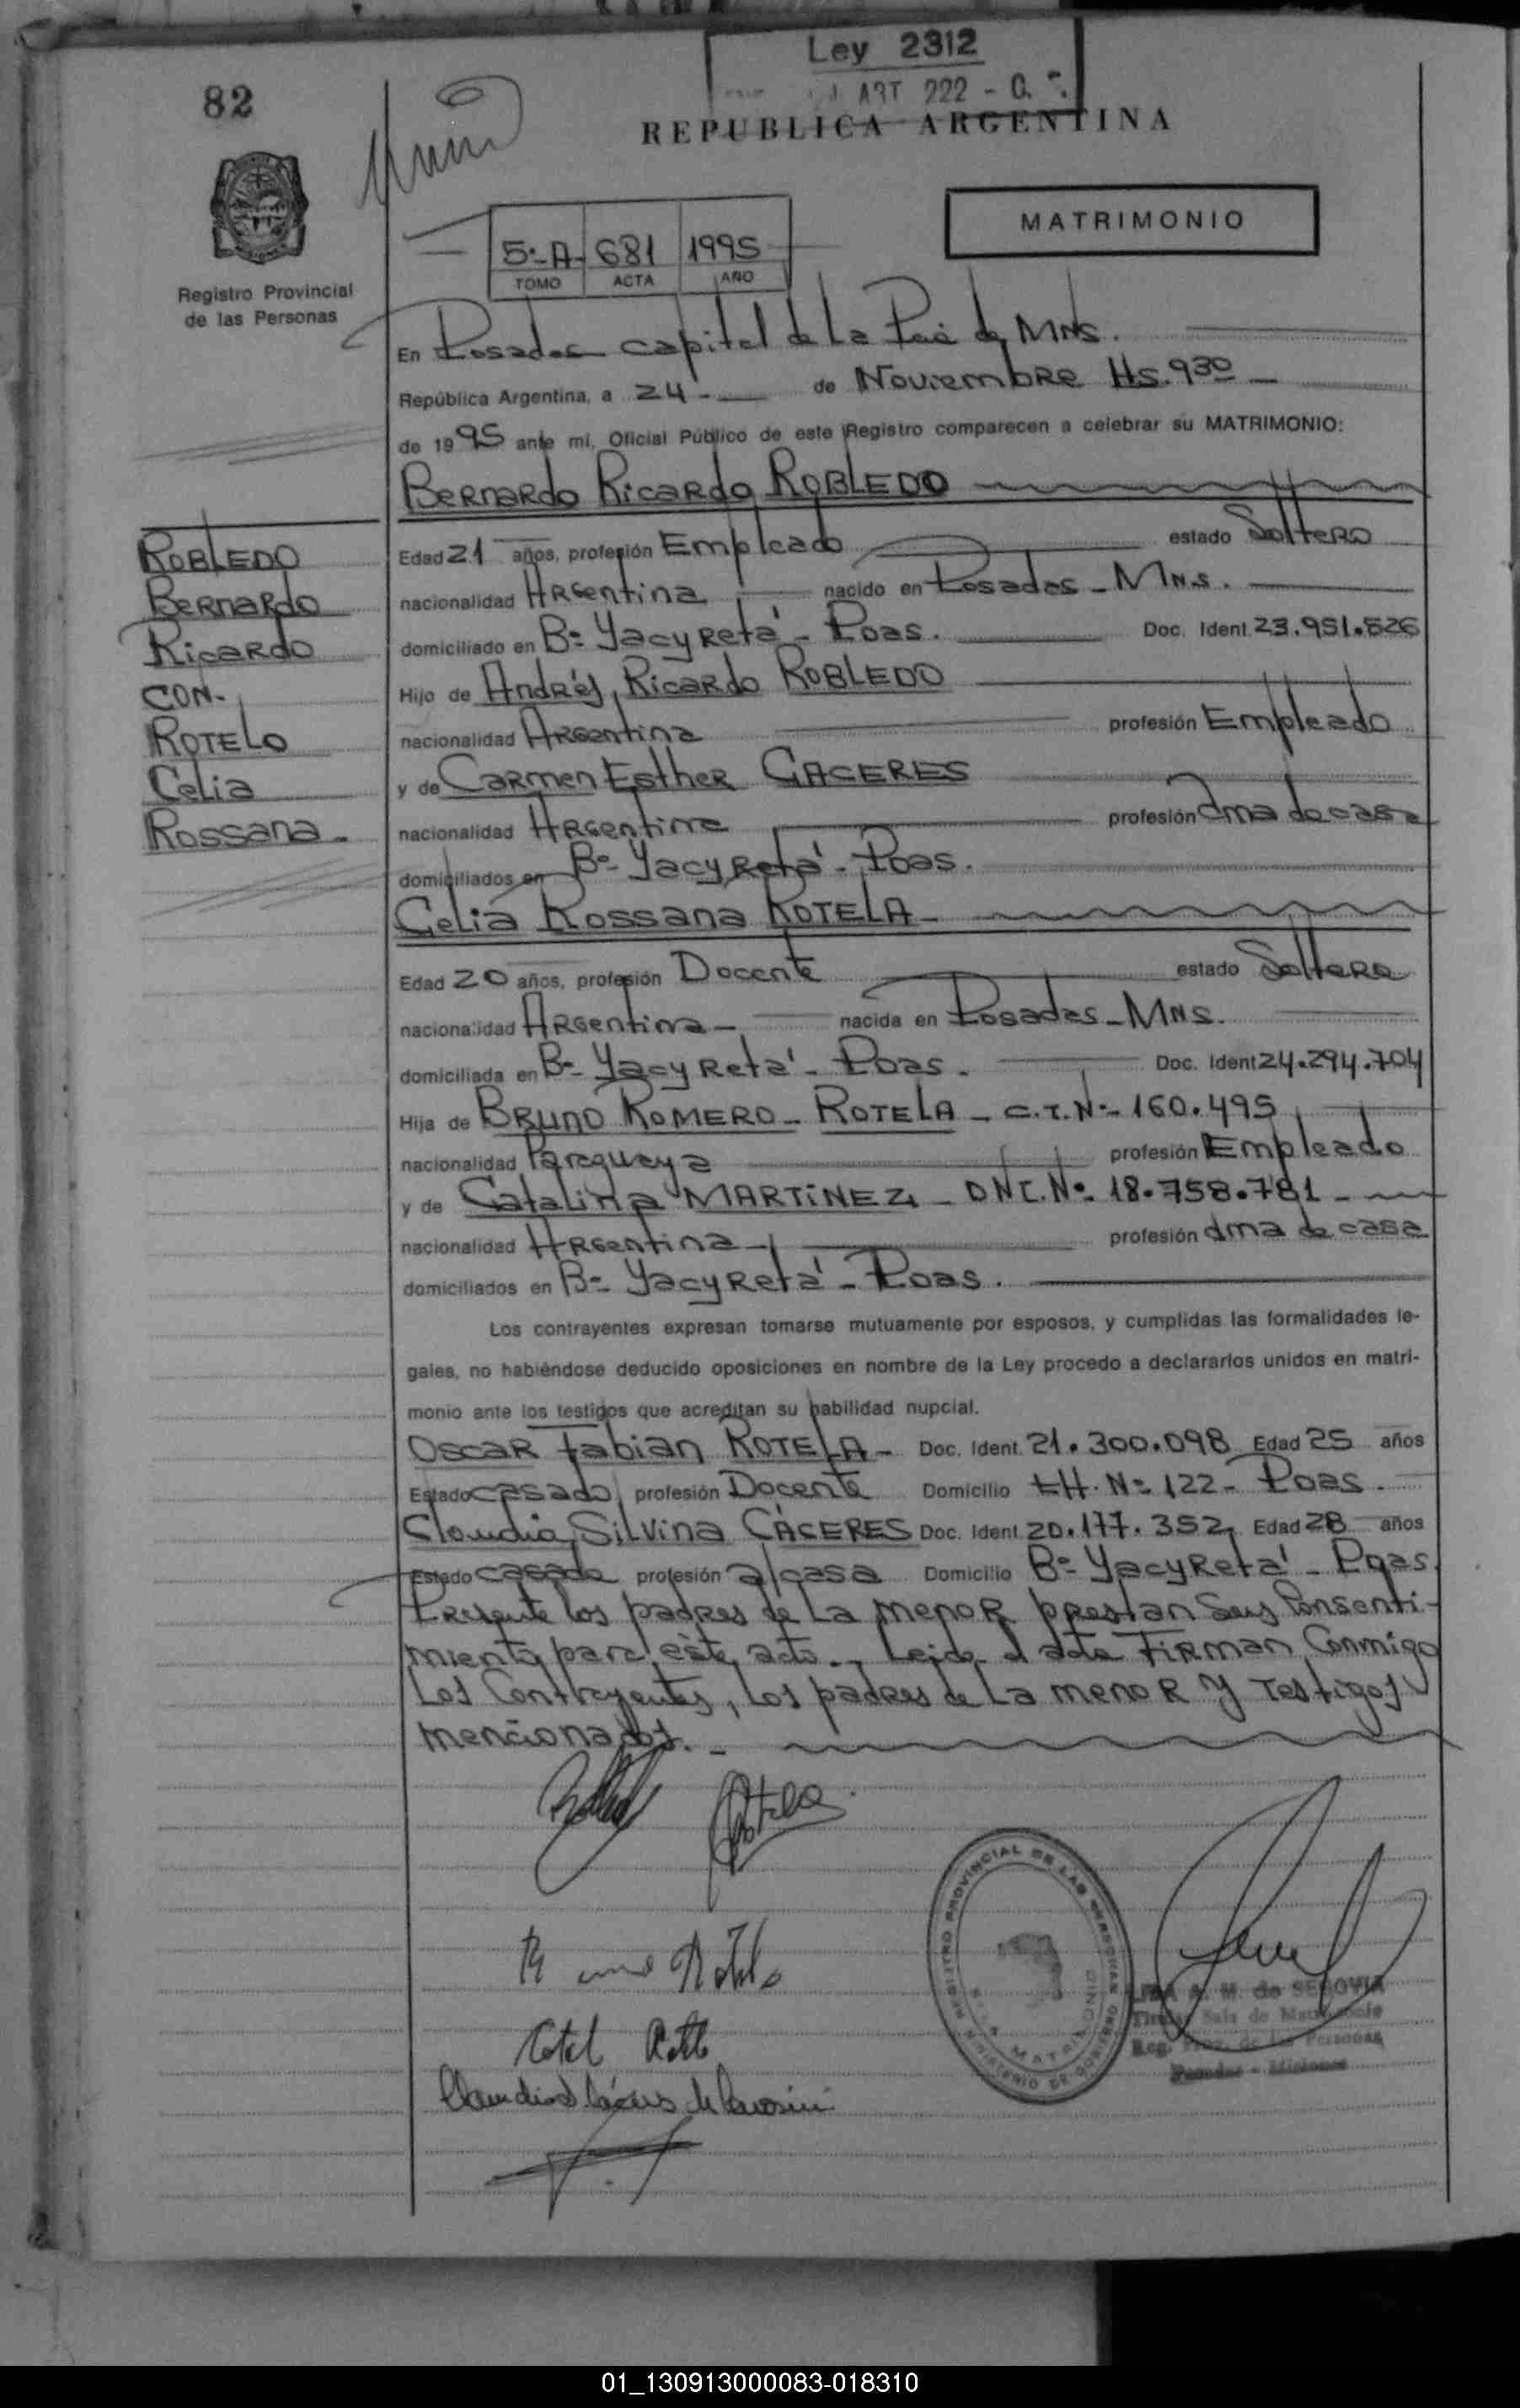 Ley 2312
ART 222 - C.
82
REPUBLICA ARGENTINA
MATRIMONIO
5º-A- 681 1995
TOMO ACTA AÑO
Registro Provincial
de las Personas
En Posadas capital de La Pcia de MNS.
República Argentina, a 24 - de Noviembre Hs. 9 30
de 1995 ante mi, Oficial Público de este Registro comparecen a celebrar su MATRIMONIO:
Bernardo Ricardo ROBLEDO
ROBLEDO
Bernardo
Ricardo
CON-
ROTELO
Celia
Rossana-
Edad 21 años, profesión Empleado estado Soltero
nacionalidad Argentina nacido en Posadas - MNS.
domiciliado en Bº Yacyretá - Poas. Doc. Ident. 23.951.526
Hijo de Andrés Ricardo ROBLEDO
nacionalidad Argentina profesión Empleado
y de Carmen Esther CACERES
nacionalidad Argentina profesión ama de casa
domiciliados en Bº Yacyretá - Poas.
Celia Rossana ROTELA -
Edad 20 años, profesión Docente estado Soltera
nacionalidad Argentina - nacida en Posadas - MNS.
domiciliada en Bº Yacyretá - Poas. Doc. Ident 24.294.704
Hija de BRUNO ROMERO - ROTELA - C.I.Nº- 160.495
nacionalidad Paraguaya profesión Empleado
y de Catalina MARTINEZ - DNI.Nº 18.758.781 -
nacionalidad Argentina - profesión ama de casa
domiciliados en Bº Yacyretá - Poas.
Los contrayentes expresan tomarse mutuamente por esposos, y cumplidas las formalidades le-
gales, no habiéndose deducido oposiciones en nombre de la Ley procedo a declararlos unidos en matri-
monio ante los testigos que acreditan su habilidad nupcial.
Oscar Fabian ROTELA - Doc. Ident. 21.300.098 Edad 25 años
Estado casado profesión Docente Domicilio CH. Nº 122 - Poas.
Claudia Silvina CÁCERES Doc. Ident. 20.177.352 Edad 28 años
Estado casada profesión a/casa Domicilio Bº Yacyretá - Poas.
Presente los padres de La menor prestan Sus Consenti-
miento para éste acto.- Leida el acta FIRMAN Conmigo
Los Contrayentes, Los padres de La menor y Testigos
mencionados. -
Rotela
REGISTRO PROVINCIAL DE LAS PERSONAS
MINISTERIO DE GOBIERNO
A. M. de SEGOVIA
Sala de Matrimonio
Reg. Prov. de las Personas
Posadas - Misiones
01_130913000083-018310